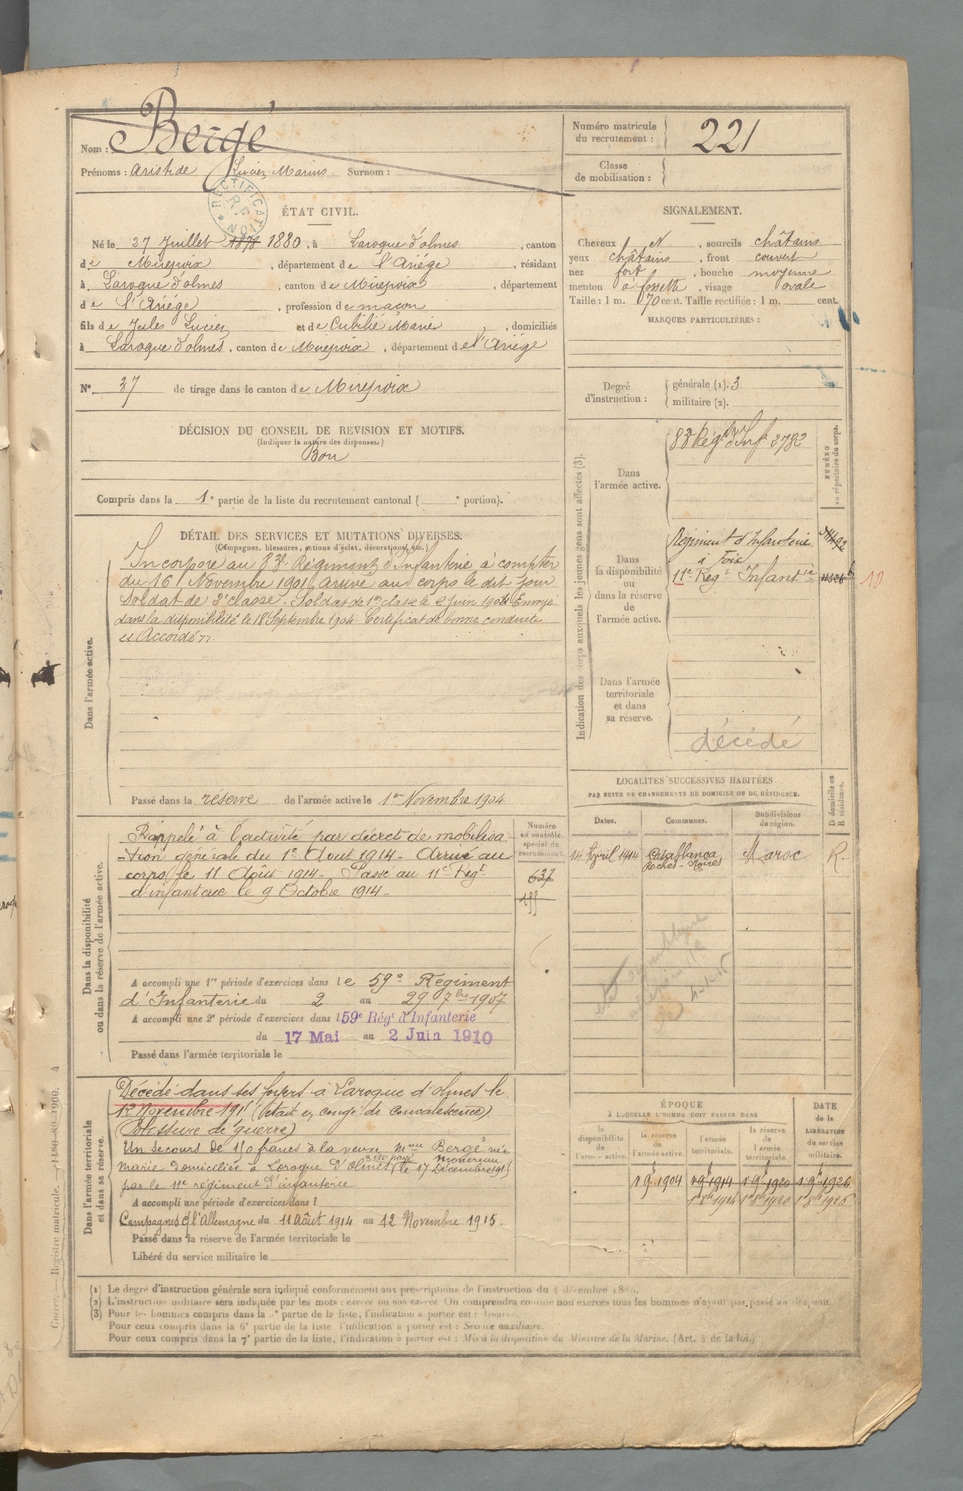 Nom : Bergé
Prénoms : Aristide Lucien Marius Surnom :
RECTIFICATION
R.F.
Numéro matricule
du recrutement : 221
Classe
de mobilisation :
ÉTAT CIVIL.
Né le 27 Juillet 1878 1880, à Laroque d'olmes, canton
de Mirepoix, département de l'Ariége, résidant
à Laroque d'olmes, canton de Mirepoix, département
de l'Ariége, profession de maçon
fils de Jules Lucien et de Cubilié Marie, domiciliés
à Laroque d'olmes, canton de Mirepoix, département de l'Ariége
N° 37 de tirage dans le canton de Mirepoix
SIGNALEMENT.
Cheveux N, sourcils châtains
yeux châtains, front couvert
nez fort, bouche moyenne
menton à fossette, visage ovale
Taille : 1 m. 70 cent. Taille rectifiée : 1 m. cent.
MARQUES PARTICULIÈRES :
Degré
d'instruction :
générale (1). 3
militaire (2).
DÉCISION DU CONSEIL DE REVISION ET MOTIFS.
(Indiquer la nature des dispenses.)
Bon
Compris dans la 1e partie de la liste du recrutement cantonal ( e portion).
DÉTAIL DES SERVICES ET MUTATIONS DIVERSES.
(Campagnes, blessures, actions d'éclat, décorations, etc.)
Dans l'armée active.
Incorporé au 83e Régiment d'Infanterie à compter
du 16 Novembre 1901. Arrivé au corps le dit jour
Soldat de 2e classe. Soldat de 1re classe le 2 juin 1904. Envoyé
dans la disponibilité le 18 Septembre 1904. Certificat de bonne conduite
Accordé
Passé dans la réserve de l'armée active le 1er Novembre 1904
Indication des corps auxquels les jeunes gens sont affectés (3).
NUMÉRO
au répertoire du corps.
Dans
l'armée active.
83e Régt d'Infie 2782
Dans
la disponibilité
ou
dans la réserve
de
l'armée active.
Régiment d'Infanterie
à Foix
11e Régt Infanterie
10
Dans l'armée
territoriale
et dans
sa réserve.
décédé
LOCALITÉS SUCCESSIVES HABITÉES
PAR SUITE DE CHANGEMENTS DE DOMICILE OU DE RÉSIDENCE.
Dates. Communes. Subdivisions
de région.
D domicile ou
R résidence.
14 Avril 1914 Casablanca
Roches-Noires Maroc R.
Dans la disponibilité
ou dans la réserve de l'armée active.
Numéro
au contrôle
spécial du
recrutement.
637
Rappelé à l'activité par décret de mobilisa
-tion générale du 1er Aout 1914. Arrivé au
corps le 11 Août 1914. Passé au 11e Régt
d'infanterie le 9 Octobre 1914.
A accompli une 1re période d'exercices dans le 59e Régiment
d'Infanterie du 2 au 29 7bre 1907
A accompli une 2e période d'exercices dans l 59e Régt d'Infanterie
du 17 Mai au 2 Juin 1910
Passé dans l'armée territoriale le
Dans l'armée territoriale
et dans sa réserve.
Décédé dans ses foyers à Laroque d'olmes le
12 Novembre 1915 (était en congé de Convalescence)
(Blessure de guerre)
Un secours de 150 francs à la veuve Mme Bergé née
Marie domiciliée à Laroque D'Olmes a été payé le 17 Décembre 1915
par le 11e régiment d'infanterie
A accompli une période d'exercices dans l
Campagnes c/ l'Allemagne du 11 Août 1914 au 12 Novembre 1915.
Passé dans la réserve de l'armée territoriale le
Libéré du service militaire le
ÉPOQUE
À LAQUELLE L'HOMME DOIT PASSER DANS
DATE
de la
LIBÉRATION
du service
militaire.
la
disponibilité
de
l'armée active.
la réserve
de
l'armée active.
l'armée
territoriale.
la réserve
de
l'armée
territoriale.
1 9b 1904 1 9b 1914 1 9b 1920 1 9b 1926
(1) Le degré d'instruction générale sera indiqué conformément aux prescriptions de l'instruction du 4 décembre 1889.
(2) L'instruction militaire sera indiquée par les mots : exercé ou non exercé. On comprendra comme non exercés tous les hommes n'ayant pas passé au drapeau.
(3) Pour les hommes compris dans la e partie de la liste, l'indication à porter est :
Pour ceux compris dans la 6e partie de la liste, l'indication à porter est : Service auxiliaire.
Pour ceux compris dans la 7e partie de la liste, l'indication à porter est : Mis à la disposition du Ministre de la Marine. (Art. 4 de la loi.)
Registre matricule.